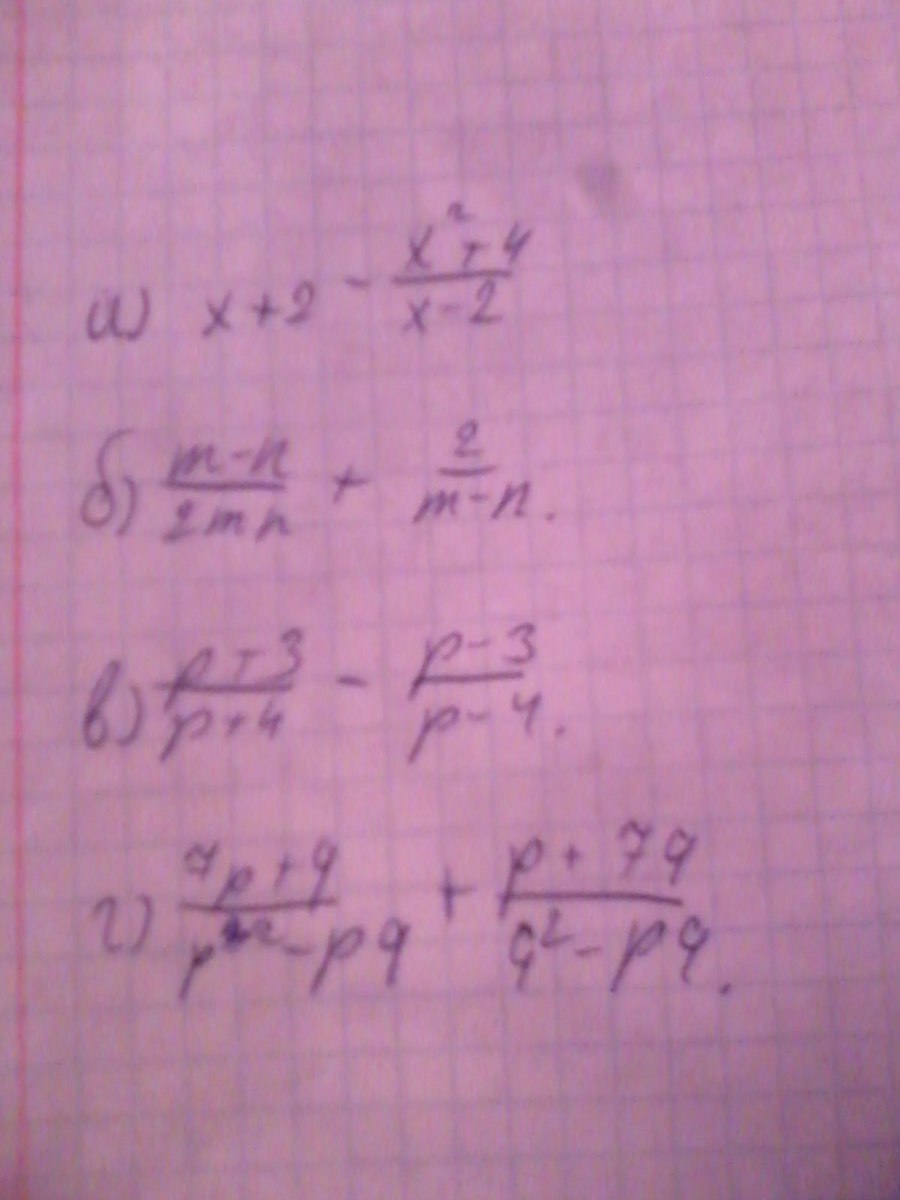 а) x+2 - \frac{x^2+4}{x-2}
б) \frac{m-n}{2mn} + \frac{2}{m-n}.
в) \frac{p+3}{p+4} - \frac{p-3}{p-4}.
г) \frac{7p+q}{p^2-pq} + \frac{p+7q}{q^2-pq}.